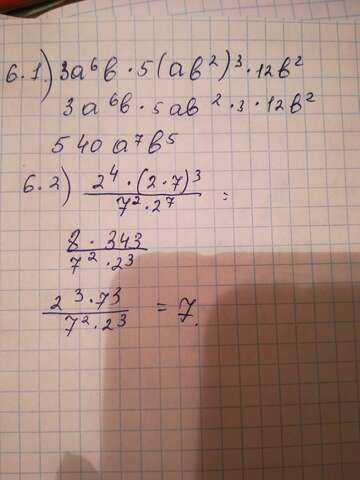 6.1) 3a⁶b · 5(ab²)³ · 12b²
3a⁶b · 5ab²·³ · 12b²
540 a⁷b⁵
6.2) 2⁴ · (2·7)³ / 7² · 2⁷ =
8 · 343 / 7² · 2³
2³ · 7³ / 7² · 2³ = 7.